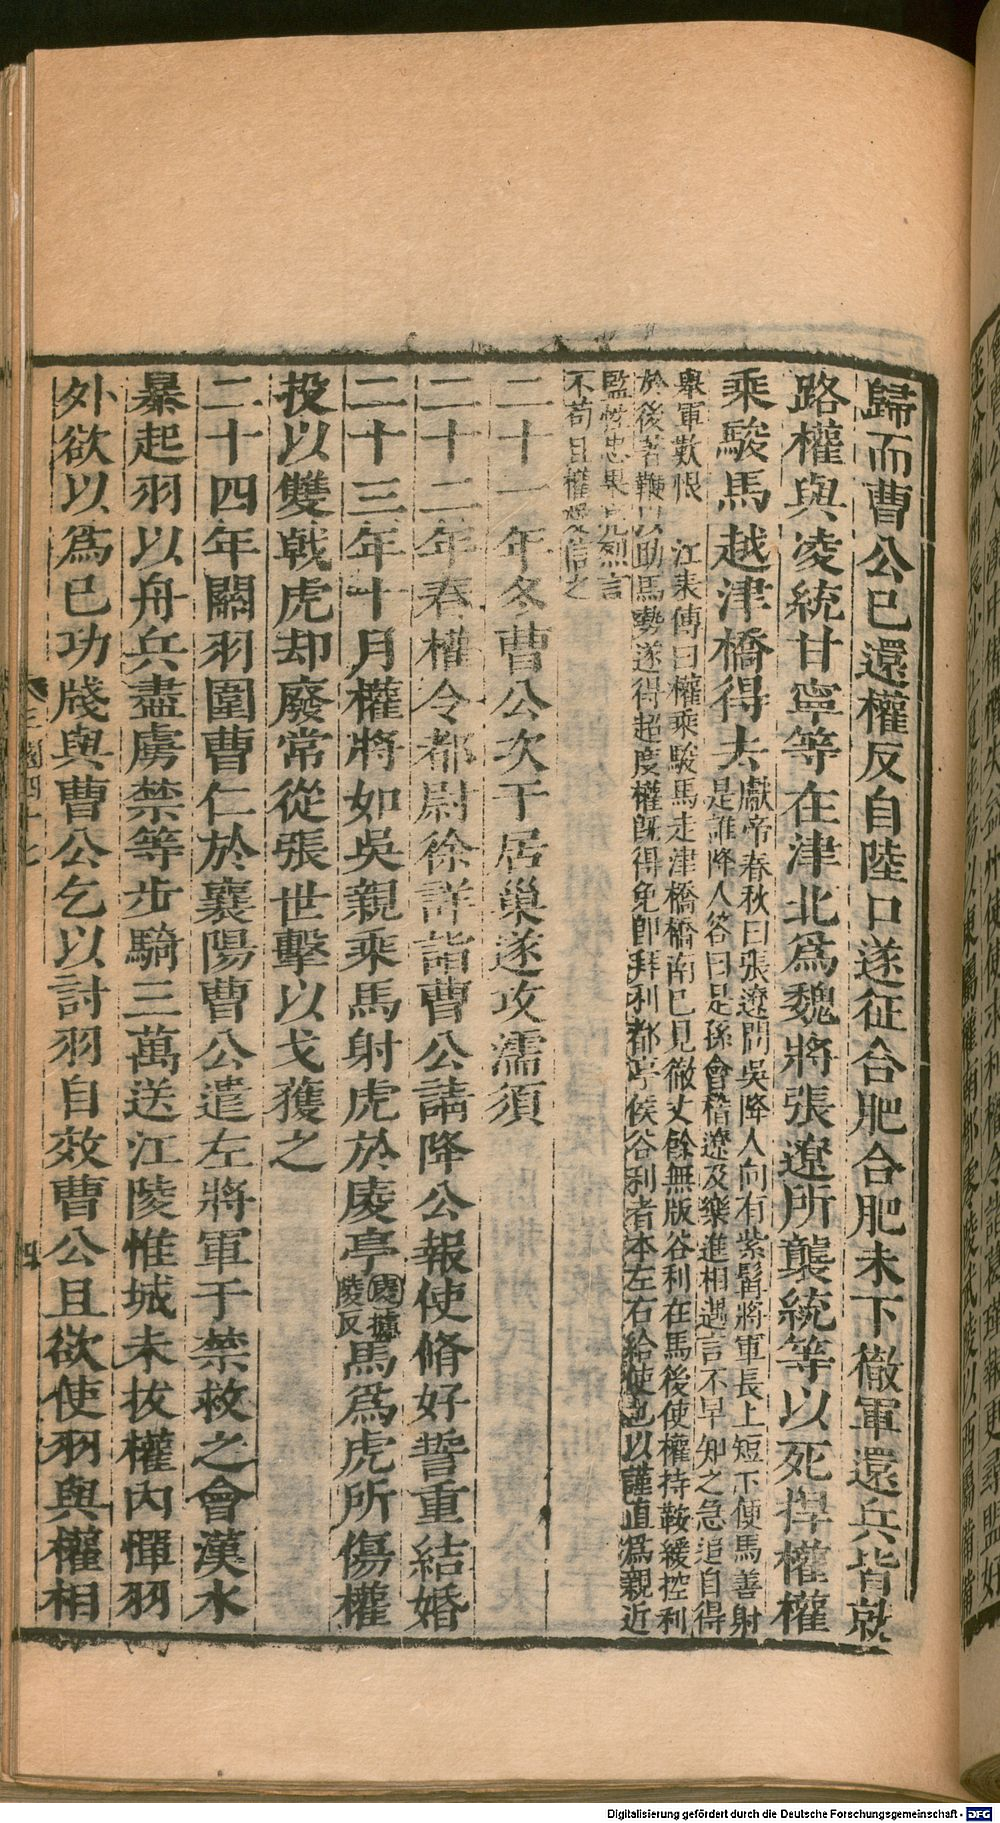 歸而曹公已還權反自陸口遂征合肥合肥未下徹軍還兵皆就
路權與凌統甘寧等在津北爲魏將張遼所襲統等以死捍權權
乘駿馬越津橋得去
獻帝春秋曰張遼問吳降人向有紫髯將軍長上短下便馬善射
是誰降人答曰是孫會稽遼及樂進相遇言不早知之急追自得
舉軍歎恨 江表傳曰權乘駿馬走津橋橋南已見徹丈餘無版谷利在馬後使權持鞍緩控利
於後著鞭以助馬勢遂得超度權旣得免卽拜利都亭侯谷利者本左右給使也以謹直爲親近
監性忠果亮烈言
不苟且權愛信之
二十一年冬曹公次于居巢遂攻濡須
二十二年春權令都尉徐詳詣曹公請降公報使脩好誓重結婚
二十三年十月權將如吳親乘馬射虎於庱亭
庱攄
陵反
馬爲虎所傷權
投以雙戟虎却廢常從張世擊以戈獲之
二十四年關羽圍曹仁於襄陽曹公遣左將軍于禁救之會漢水
暴起羽以舟兵盡虜禁等步騎三萬送江陵惟城未拔權內憚羽
外欲以爲己功牋與曹公乞以討羽自效曹公且欲使羽與權相
四
Digitalisierung gefördert durch die Deutsche Forschungsgemeinschaft - DFG